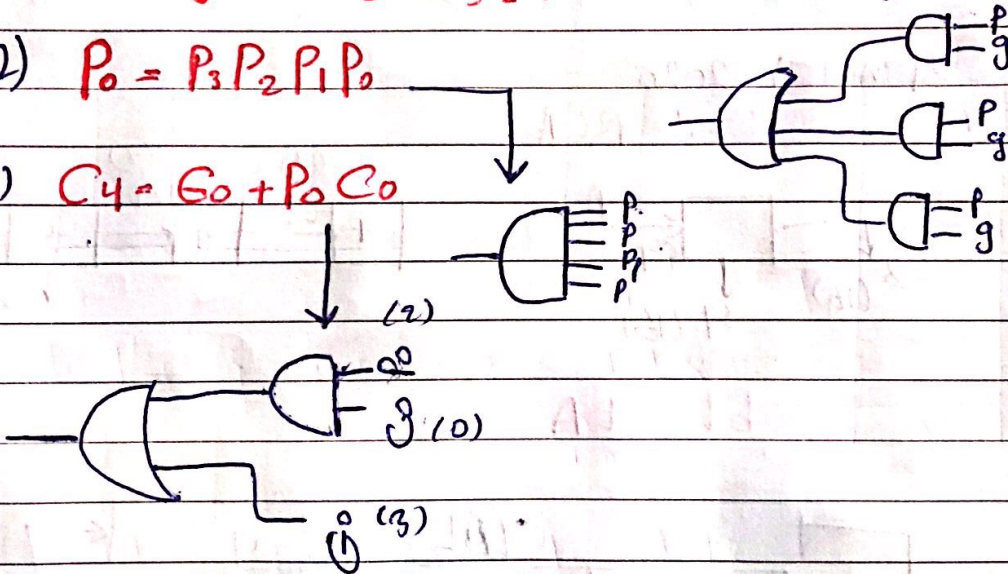 2) P₀ = P₃ P₂ P₁ P₀
) C4 = G₀ + P₀ C₀
P
g
P
g
P
g
P
P
P₁
P
(2)
(0)
(3)